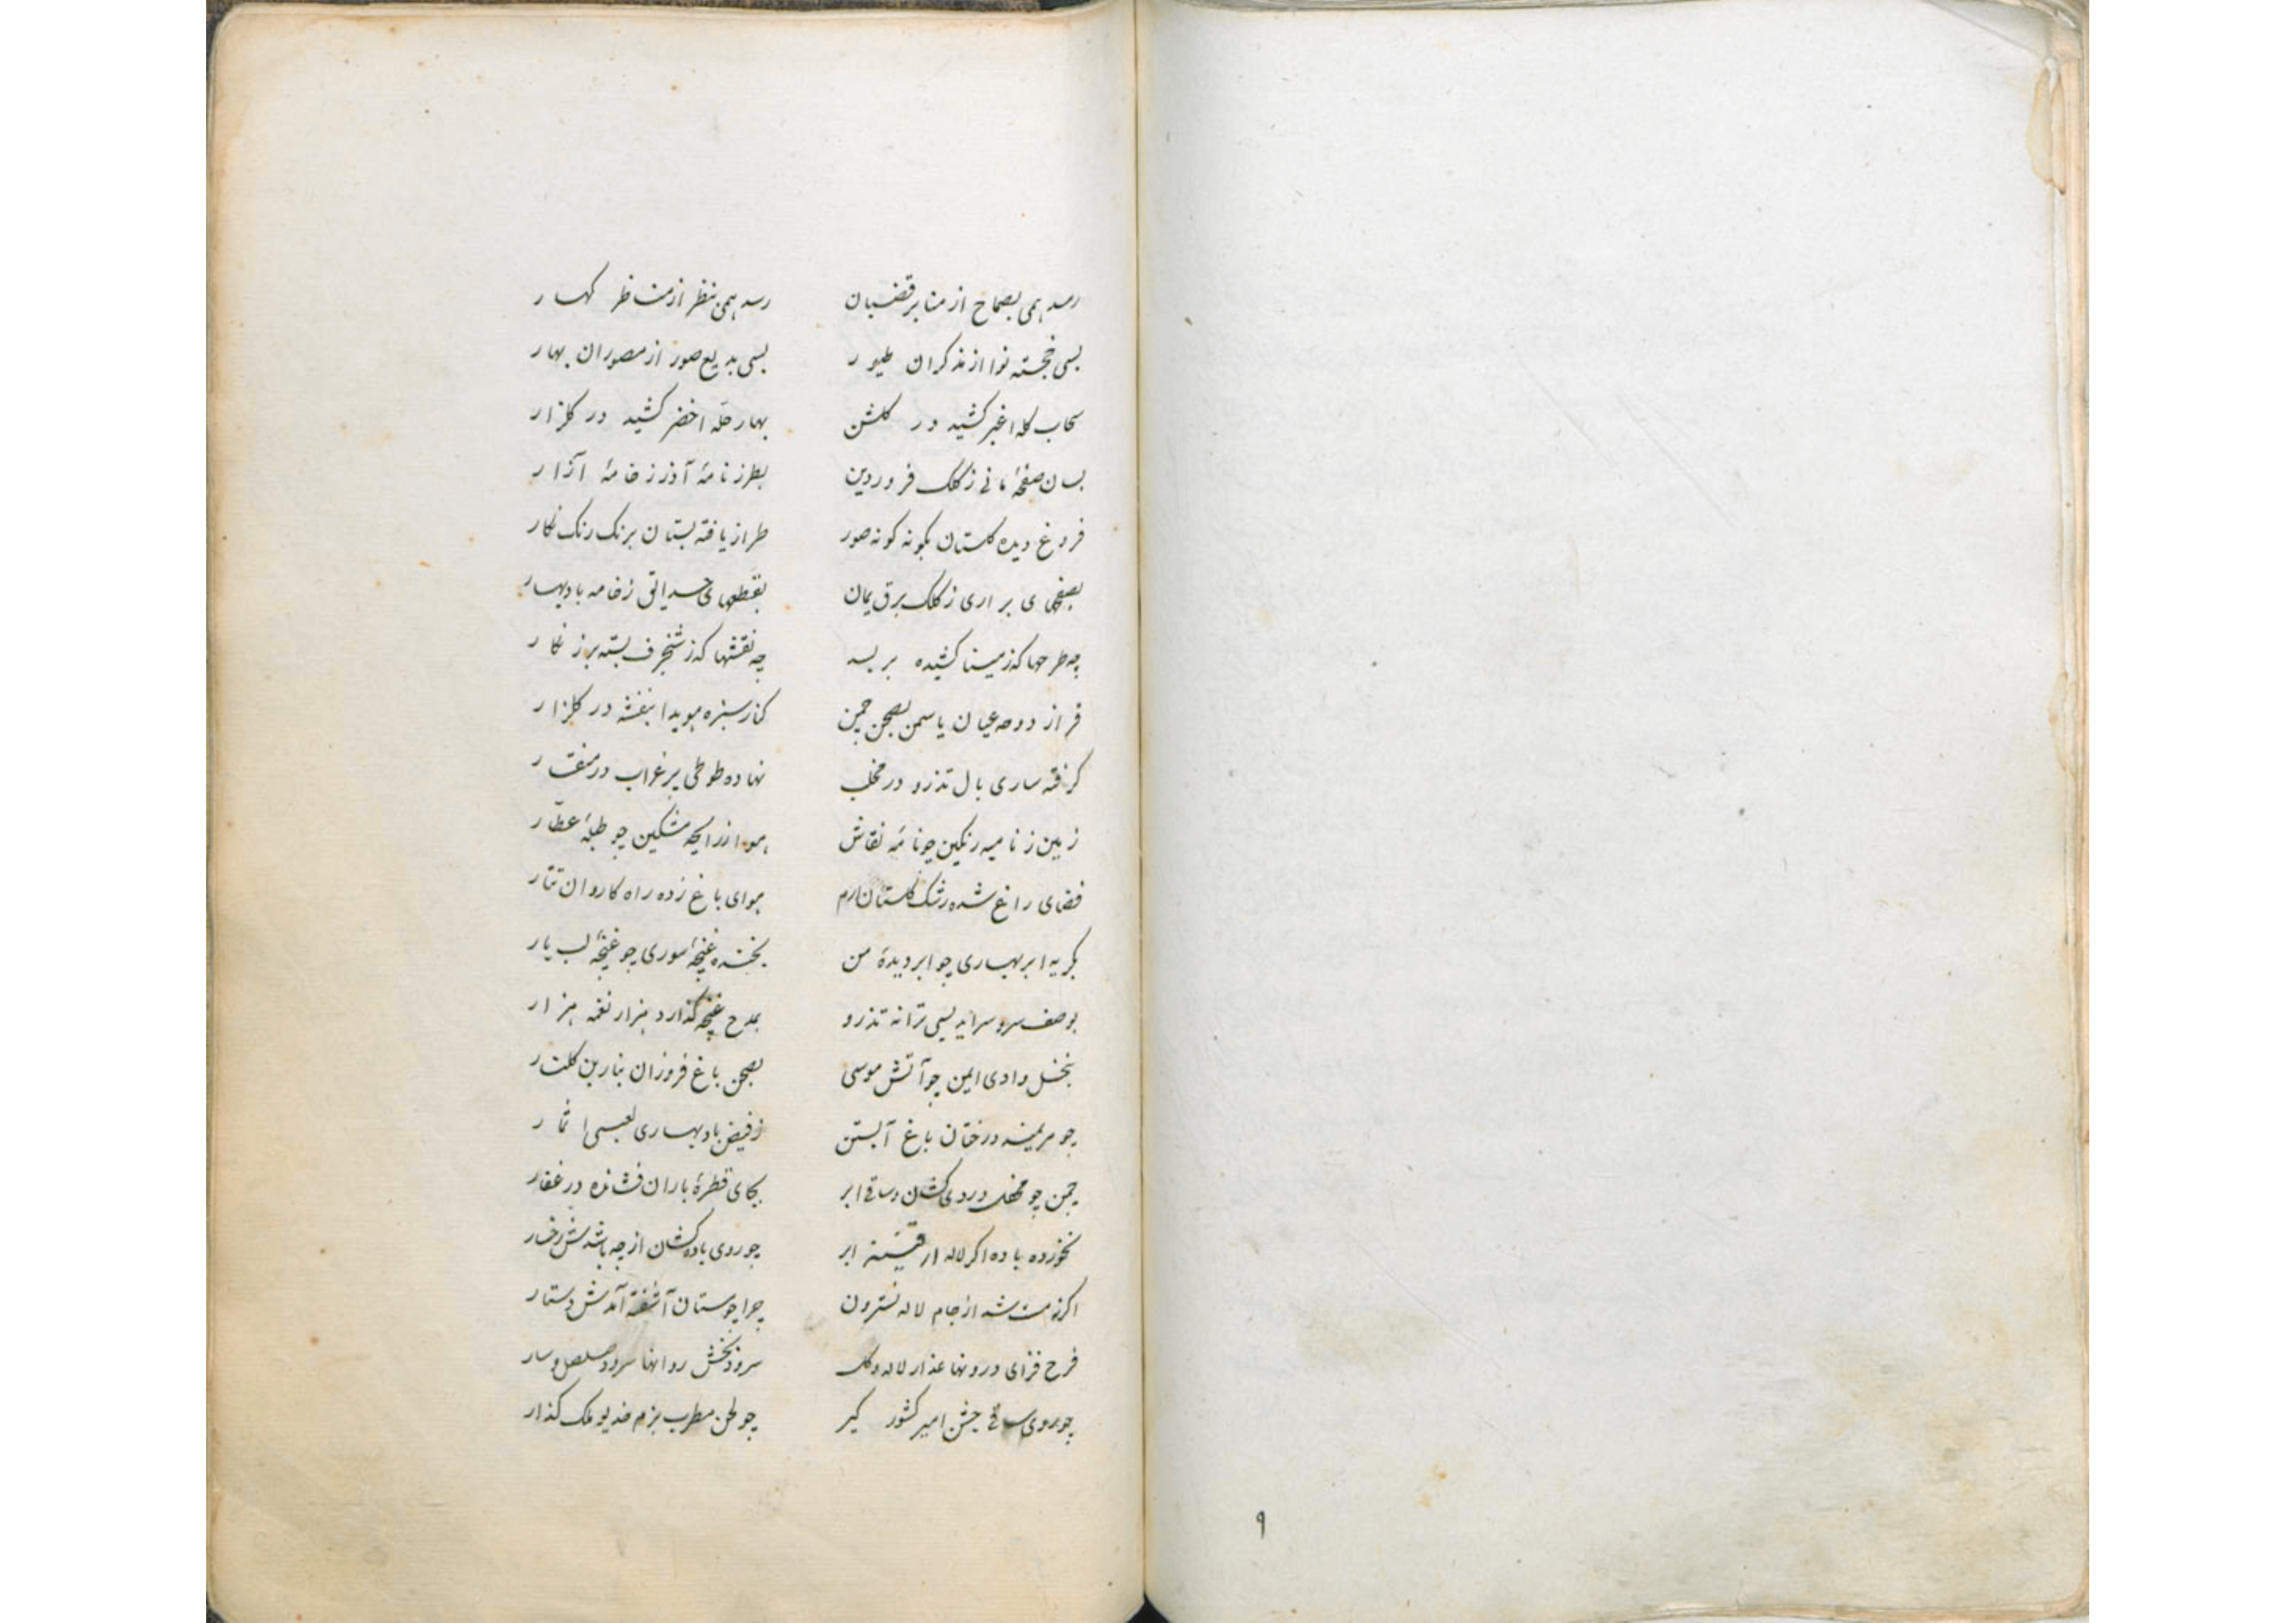 رسد همی بصماخ از منابر قضبان رسد همی بنظر از مناظر کهسار
بسی خجسته نوا از مذکران طیور بسی بدیع صور از مصوران بهار
سحاب کله اغبر کشید در کلشن بهار حله اخضر کشید در کلزار
بسان صفحهٔ مانی ز کلک فروردین بطرز نامهٔ آذر ز خامهٔ آزار
فروغ دیده کلستان بکونه کونه صور طراز یافته بستان برنک رنک نکار
بصفحهای براری ز کلک برق یمان بقطعهای حدائق ز خامه باد بهار
چه طرحها که ز مینا کشیده بر بسد چه نقشها که ز شنجرف بسته بر زنکار
فراز دوحه عیان یاسمن بصحن چمن کنار سبزه هویدا بنفشه در کلزار
کرفته ساری بال تذرو در مخلب نهاده طوطی پر غراب در منقار
زمین ز نامیه رنکین چو نامهٔ نقاش هوا ز رایحه مشکین چو طبلهٔ عطّار
فضای راغ شده رشک کلستان ارم هوای باغ زده راه کاروان تتار
بکریه ابر بهاری چو ابر دیدهٔ من بخنده غنچهٔ سوری چو غنچهٔ لب یار
بوصف سرو سراید بسی ترانه تذرو بمدح غنچه کذارد هزار نغمه هزار
بنخل وادی ایمن چو آتش موسی بصحن باغ فروزان بنار بن کلنار
چو مریمند درختان باغ آبستن ز فیض باد بهاری بعیسی اثمار
چمن چو محفل دردی کشان و ساقی ابر بجای قطرهٔ باران فشانده در عقار
نخورده باده اکر لاله از قنینه ابر چو روی باده کشان از چه باشدش رخسار
اکر نه مست شد از جام لاله نسترون چرا چو مستان آشفته آمدش دستار
فرح فزای درونها عذار لاله و کل سرور بخش روانها سرود صلصل و سار
چو روی ساقی جشن امیر کشور کیر چو لحن مطرب بزم خدیو ملک کذار
۹